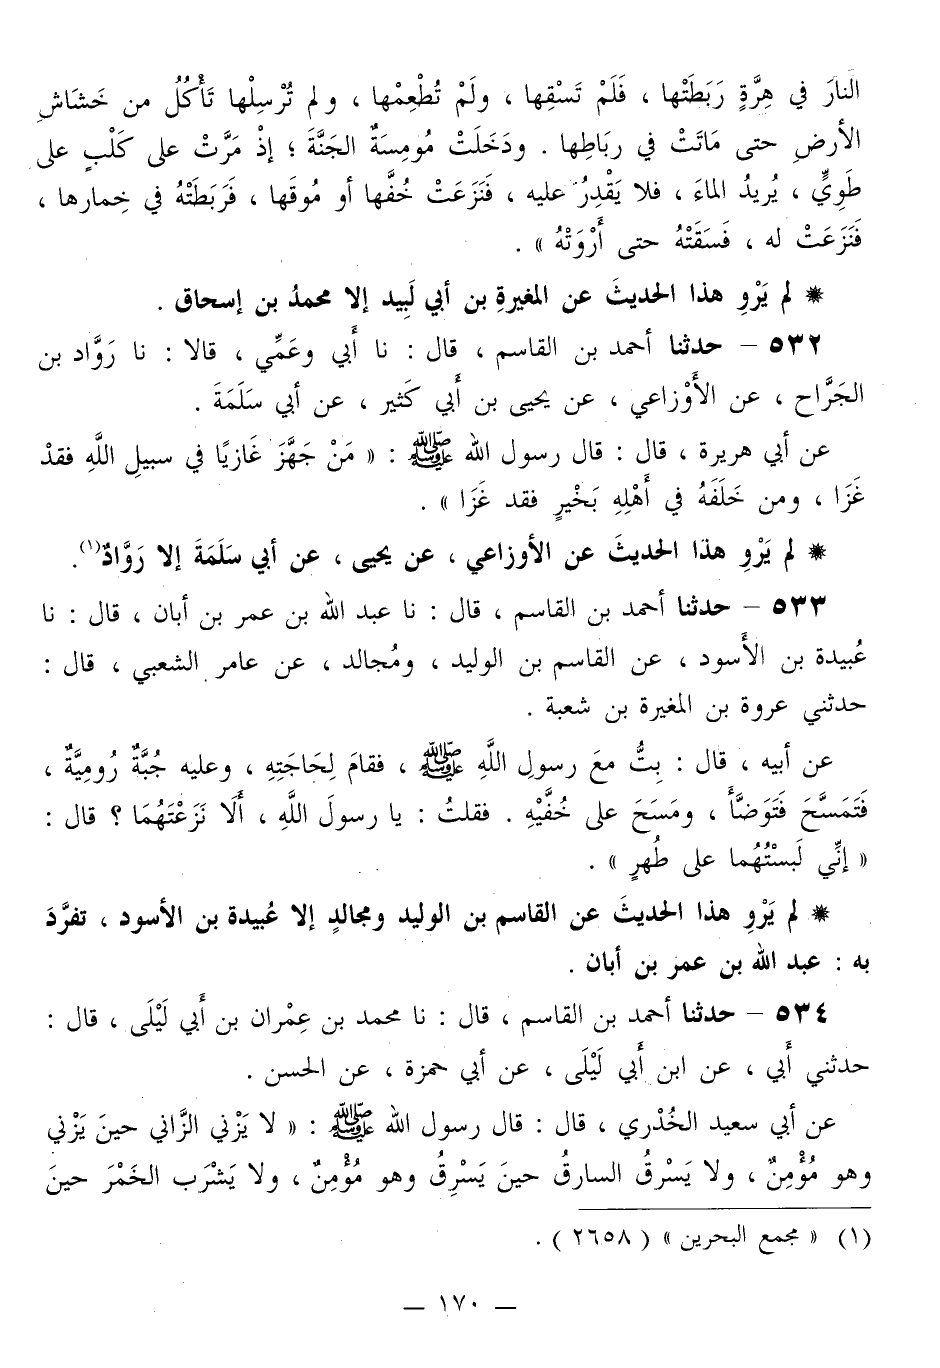 النارَ في هِرَّةٍ رَبَطَتْها ، فَلَمْ تَسْقِها ، ولَمْ تُطْعِمْها ، ولم تُرْسِلْها تَأْكُلُ من خَشَاشِ
الأرضِ حتى مَاتَتْ في رِبَاطِها . ودَخَلَتْ مُومِسَةٌ الجَنَّةَ ؛ إذْ مَرَّتْ على كَلْبٍ على
طَوِيٍّ ، يُريدُ الماءَ ، فلا يَقْدِرُ عليه ، فَنَزَعَتْ خُفَّها أو مُوقَها ، فَرَبَطَتْهُ في خِمارها ،
فَنَزَعَتْ له ، فَسَقَتْهُ حتى أَرْوَتْهُ » .
* لم يَرْوِ هذا الحديثَ عن المغيرةِ بن أبي لَبِيد إلا محمدُ بن إسحاق .
٥٣٢ – حدثنا أحمد بن القاسم ، قال : نا أَبي وعَمِّي ، قالا : نا رَوَّاد بن
الجَرَّاح ، عن الأَوْزاعي ، عن يحيى بن أَبي كثير ، عن أبي سَلَمَةَ .
عن أبي هريرة ، قال : قال رسول الله ﷺ : « مَنْ جَهَّزَ غَازِيًا في سبيلِ اللَّهِ فقدْ
غَزَا ، ومن خَلَفَهُ في أَهْلِهِ بَخْيرٍ فقد غَزَا » .
* لم يَرْوِ هذا الحديثَ عن الأوزاعي ، عن يحيى ، عن أبي سَلَمَةَ إلا رَوَّادٌ(١).
٥٣٣ – حدثنا أحمد بن القاسم ، قال : نا عبد الله بن عمر بن أبان ، قال : نا
عُبيدة بن الأَسود ، عن القاسم بن الوليد ، ومُجالد ، عن عامر الشعبي ، قال :
حدثني عروة بن المغيرة بن شعبة .
عن أبيه ، قال : بِتُّ معَ رسولِ اللَّهِ ﷺ ، فقامَ لِحَاجَتِهِ ، وعليه جُبَّةٌ رُومِيَّةٌ ،
فَتَمَسَّحَ فَتَوَضَّأَ ، ومَسَحَ على خُفَّيْهِ . فقلتُ : يا رسولَ اللَّهِ ، أَلَا نَزَعْتَهُمَا ؟ قال :
« إنِّي لَبِسْتُهُما على طُهرٍ » .
* لم يَرْوِ هذا الحديثَ عن القاسم بن الوليد ومجالدٍ إلا عُبيدة بن الأسود ، تفرَّدَ
به : عبد الله بن عمر بن أبان .
٥٣٤ – حدثنا أحمد بن القاسم ، قال : نا محمد بن عِمْران بن أَبي لَيْلَى ، قال :
حدثني أَبي ، عن ابن أَبي لَيْلَى ، عن أبي حمزة ، عن الحسن .
عن أبي سعيد الخُدْري ، قال : قال رسول الله ﷺ : « لا يَزْني الزَّاني حينَ يَزْني
وهو مُؤْمِنٌ ، ولا يَسْرقُ السارقُ حينَ يَسْرِقُ وهو مُؤْمِنٌ ، ولا يَشْرَب الخَمْرَ حينَ
(١) « مجمع البحرين » ( ٢٦٥٨ ) .
– ١٧٠ –